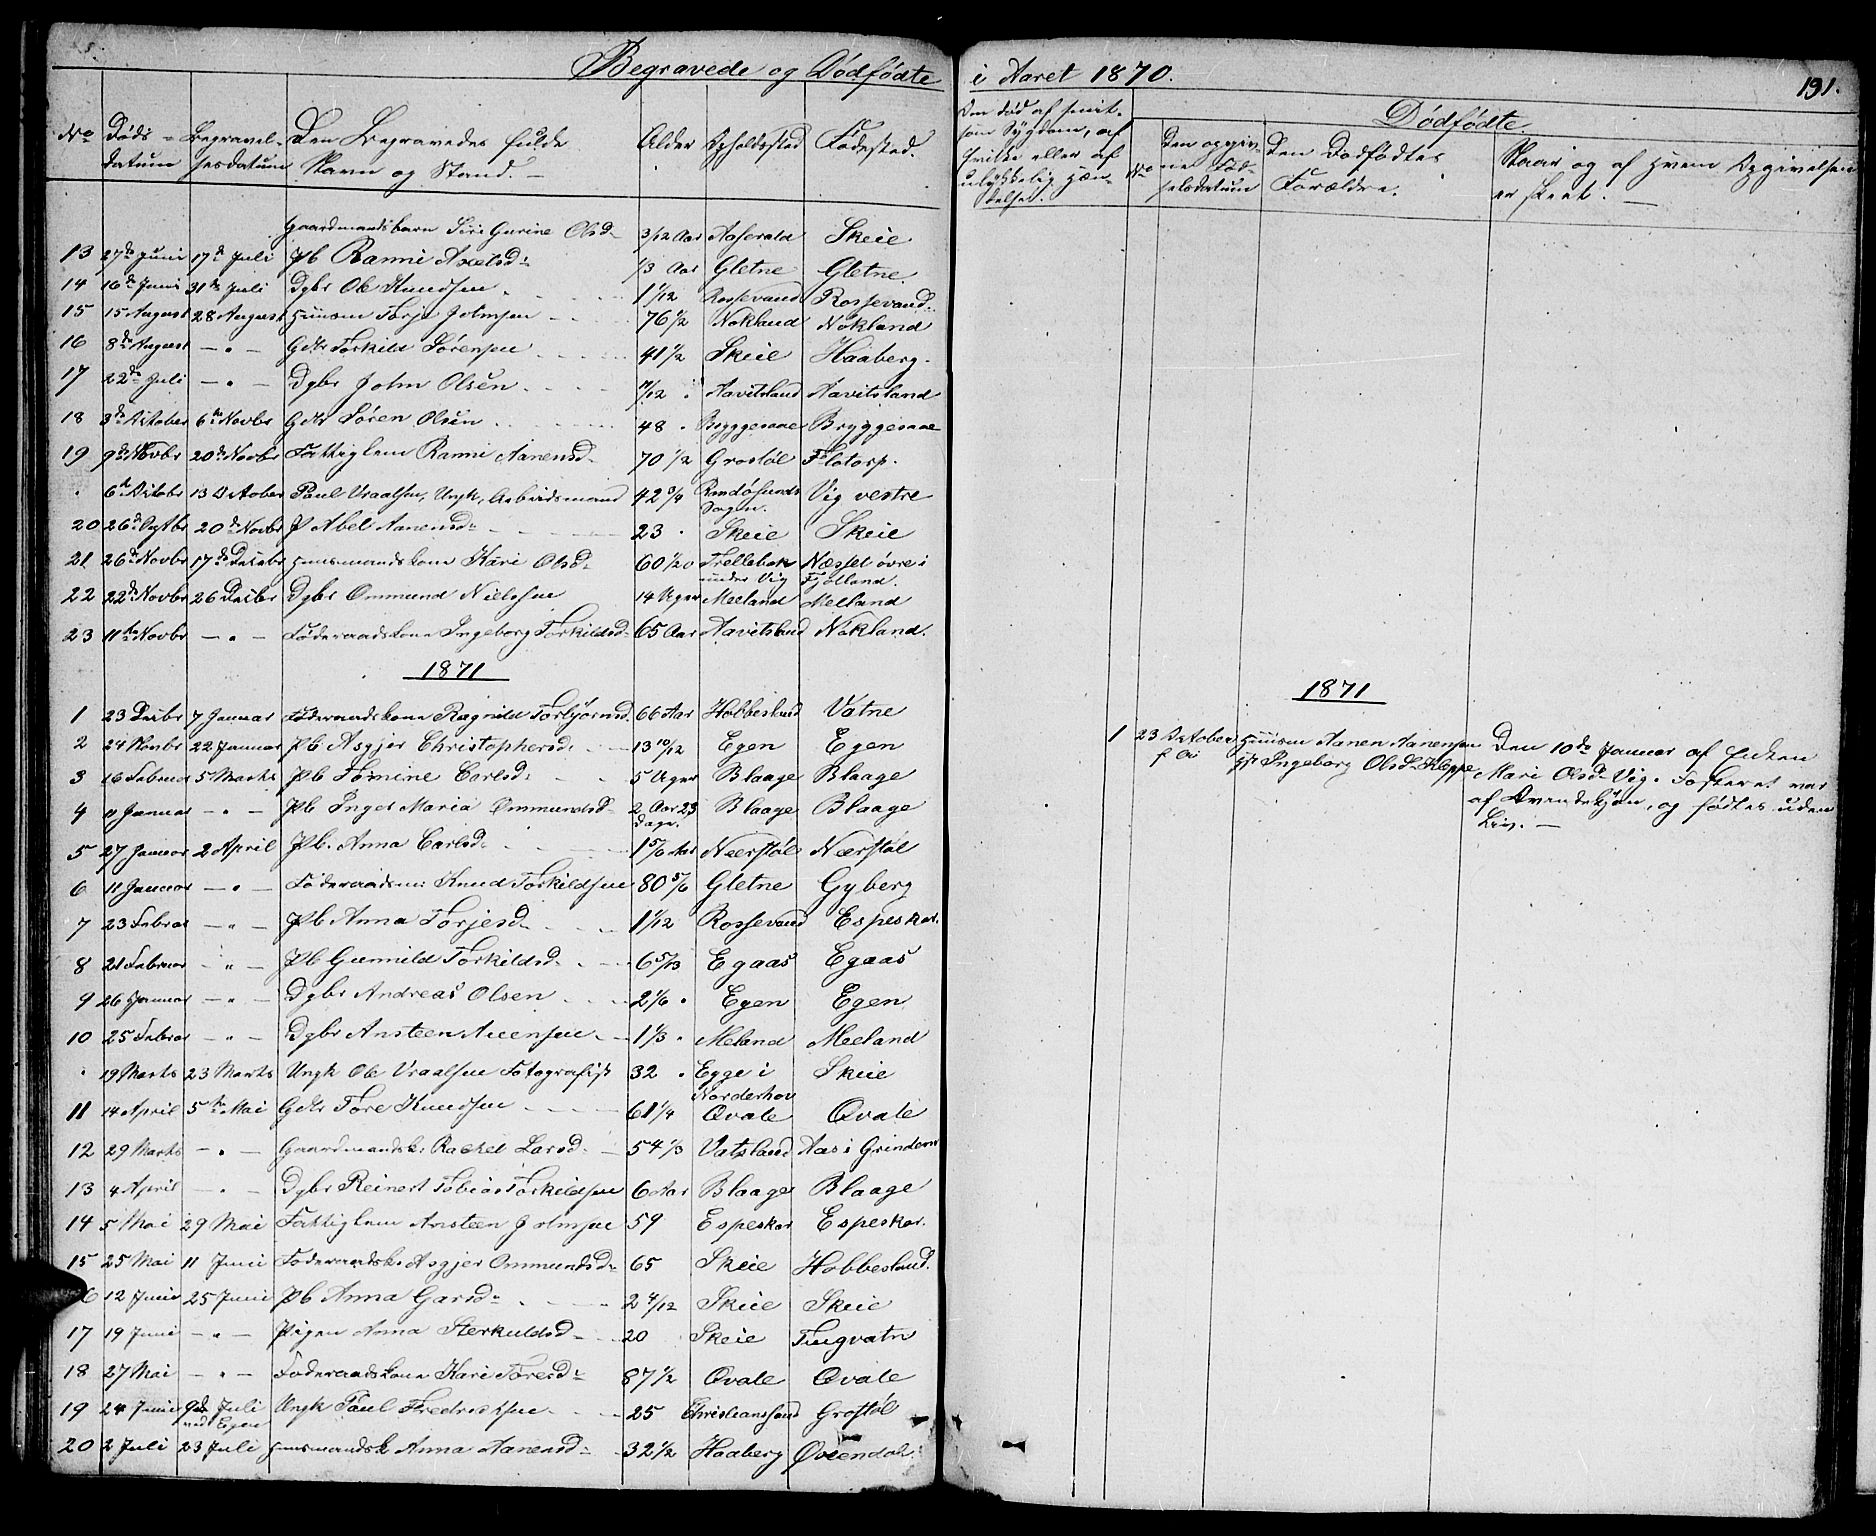 Begravede og Dødfødte i Aaret 1870. 191.
No Døds-datum Begravel-sesdatum Den Begravedes fulde Navn og Stand. Alder Opholdssted Fødested.
Den død af smit-som Sygdom, af Svikke eller af ulykkelig Hæn-delse.
Dødfødte.
No Den opgiv-ne Fød-selsdatum Den Dødfødtes Forældre. Naar og af Hvem Opgivelsen er skeet.
13 27de Juni 17de Juli Gaardmandsbarn Siri Gurine Olsd. 3/12 Aar Aaserald Skeie
Pb Ranni Axelsd. 1/3 Aar Gletne Gletne
14 16de Juni 31te Juli Dgbr Ole Knudsen 1 1/12 Rossevand Rossevand
15 15 August 28 August Huusm Torje Johnsen 76 1/2 Nokland Nokland
16 8de August - " - Gdbr Torkild Sørensen 41 1/2 Skeie Haaberg
17 22de Juli - " - Dgbr John Olsen 7/12 Aavitsland Aavitsland
18 3de October 6te Novbr Gdbr Søren Olsen 48 Bryggesaae Bryggesaae
19 9de Novbr 20de Novbr Fattiglem Ranni Aanensd. 70 1/2 Grostøl Flotorp.
" 6te Octobr 13 October Paul Vraalsen, Ungk, Arbeidsmand 42 3/4 Randøsunds Sogn. Vig vestre
20 26de Octbr 20de Novbr P Abel Aanensd. 23 Skeie Skeie
21 26de Novbr 17de Decebr Huusmandskone Kari Olsd. 60 1/20 Trellebak under Vig Næsset øvre i Fjotland.
22 22de Novbr 26 Decbr Dgbr Ommund Nielsen 14 Uger Meeland Meeland
23 11te Novbr - " - Føderaadskone Ingeborg Torkildsd. 65 Aar Aavitsland Nokland.
1871
1 23 Decbr 7 Januar Føderaadskone Ragnild Torbjørnsd. 66 Aar Hobbesland Vatne
2 24 Novbr 22 Januar Pb Asgjer Christophersd. 13 10/12 Egen Egen
3 16 Februar 5 Marts Pb Tomine Carlsd. 5 Uger Blaage Blaage
4 11 Januar - " - Pb Inger Maria Ommundsd. 2 Aar 23 Dage. Blaage Blaage
5 27 Januar 2 April Pb. Anna Carlsd. 1 5/6 Aar Neerstøl Nerstøl
6 11 Januar - " - Føderaadsm: Knud Torkildsen 80 5/6 Gletne Gyberg
7 23 Februar - " - Pb Anna Torjesd. 1 1/12 Rossevand Espeskar.
8 21 Februar - " - Pb Gunnild Torkildsd. 6 5/13 Egaas Egaas
9 26 Januar - " - Dgbr Andreas Olsen 2 1/6 Egen Egen
10 25 Februar - " - Dgbr Ansteen Auensen 1 1/3 Meland Meeland
" 19 Marts 23 Marts Ungk Ole Vraalsen Fotografist 32 Egge i Norderhov Skeie
11 14 April 5te Mai Gdbr Tore Knudsen 61 1/4 Qvale Qvale
12 29 Marts - " - Gaardmandsk: Rachel Larsd. 54 1/3 Vatsland Aas i Grindem
13 4 April - " - Dgbr Reinert Tobias Torkildsen 6 Aar Blaage Blaage
14 5 Mai 29 Mai Fattiglem Ansteen Johnsen 59 Espeskar Espeskar.
15 25 Mai 11 Juni Føderaadsk. Asgjer Ommundsd. 65 Skeie Hobbesland.
16 12 Juni 25 Juni Pb Anna Garsd. 2 4/12 Skeie Skeie
17 19 Juni - " - Pigen Anna Sterkuldsd. 20 Skeie Tingvatn
18 27 Mai - " - Føderaadskone Kari Toresd. 87 1/2 Qvale Qvale
19 24 Juni 9de Juli ved Egen Ungk Paul Fredriksen 25 Christianssand Grostøl
20 2 Juli 23 Juli Huusmandsk Anna Aanensd. 32 1/2 Haaberg Øvendal.
1871
1 23 October f. A. Huusm Aanen Aanensen Hr Ingeborg Olsd. Kleppe
Den 10de Januar af Enken
Mari Olsd. Vig. Fosteret var
af Qvindekjøn, og fødtes uden
Liv. -